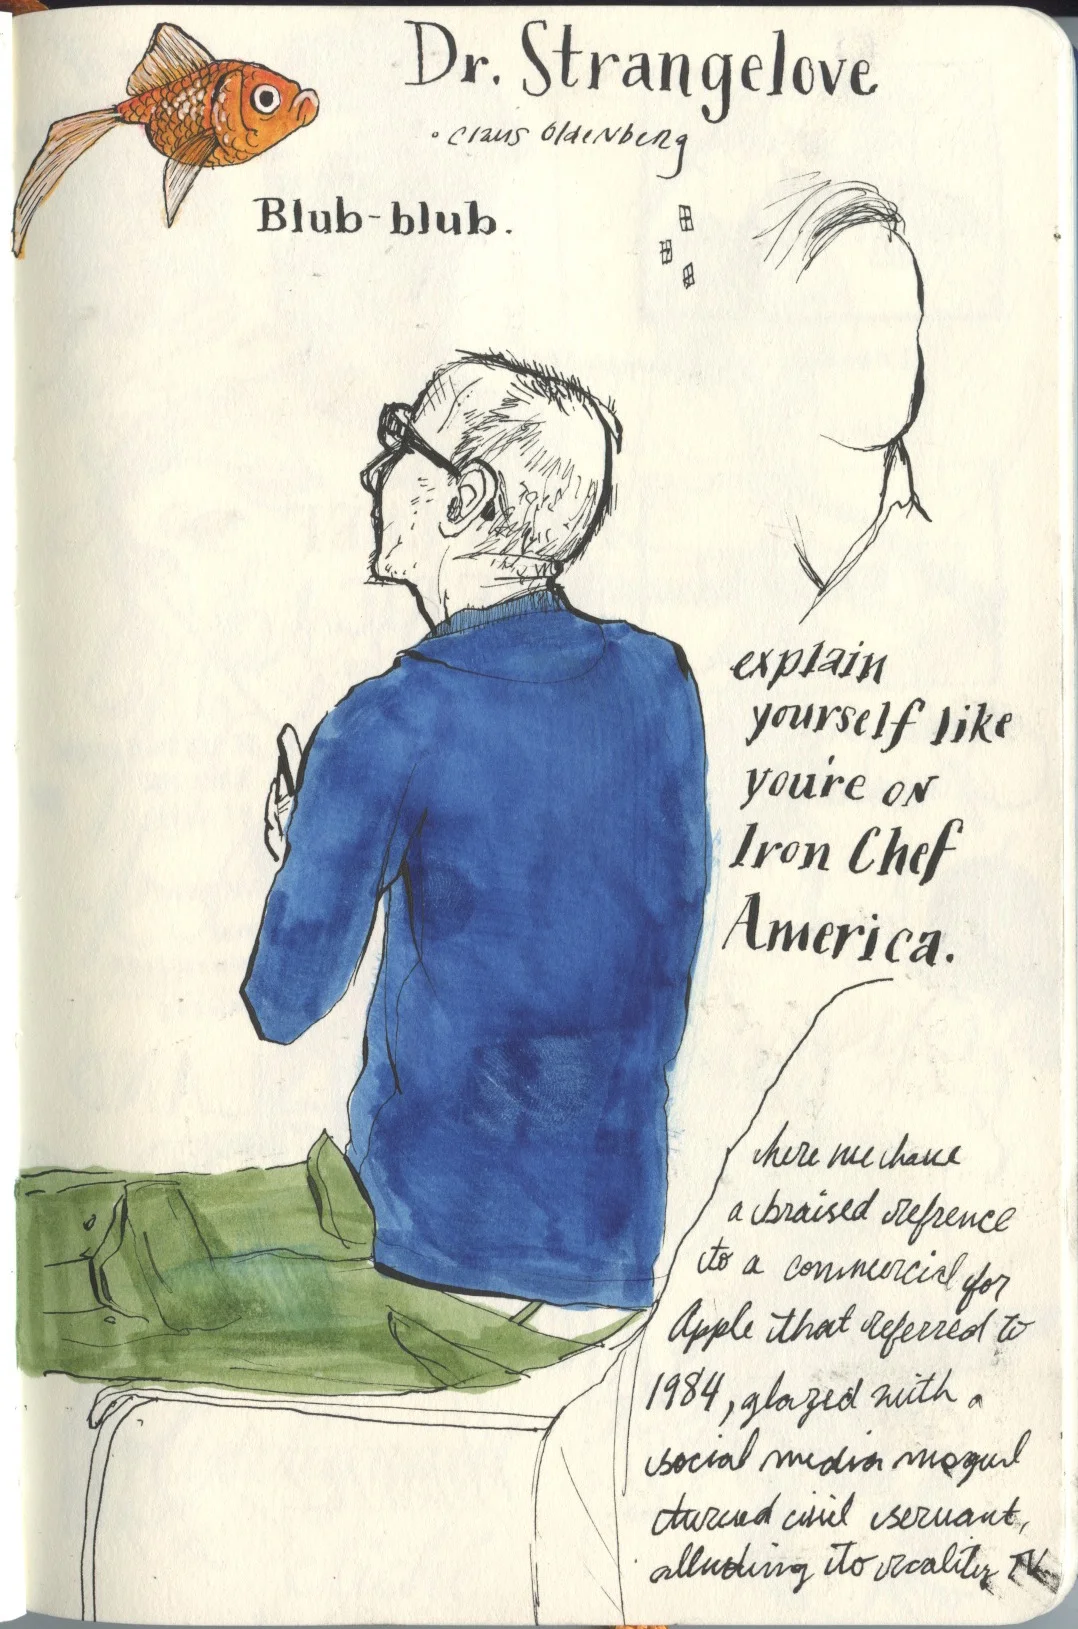 Dr. Strangelove
• Claus Oldenberg
Blub-blub.
explain
yourself like
you're on
Iron Chef
America.
here we have
a braised refrence
to a commercial for
Apple that referred to
1984, glazed with a
social media mogul
turned civil servant,
alluding to reality TV